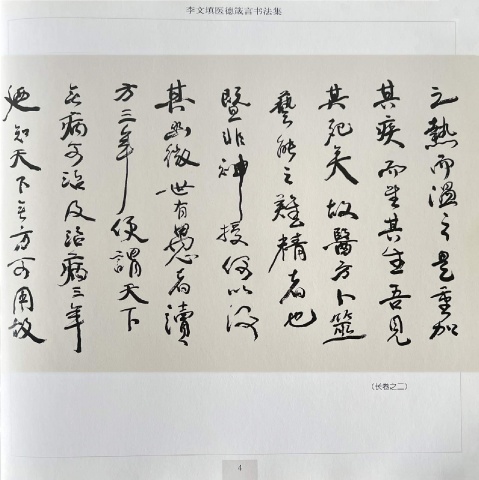 李文瑱医德箴言书法集
之熱而溫之是重加
其疾而望其生吾見
其死矣故醫方卜筮
藝能之難精者也
既非神授何以得
其幽微世有愚者讀
方三年便謂天下
无病可治及治病三年
廼知天下无方可用故
（长卷之二）
4